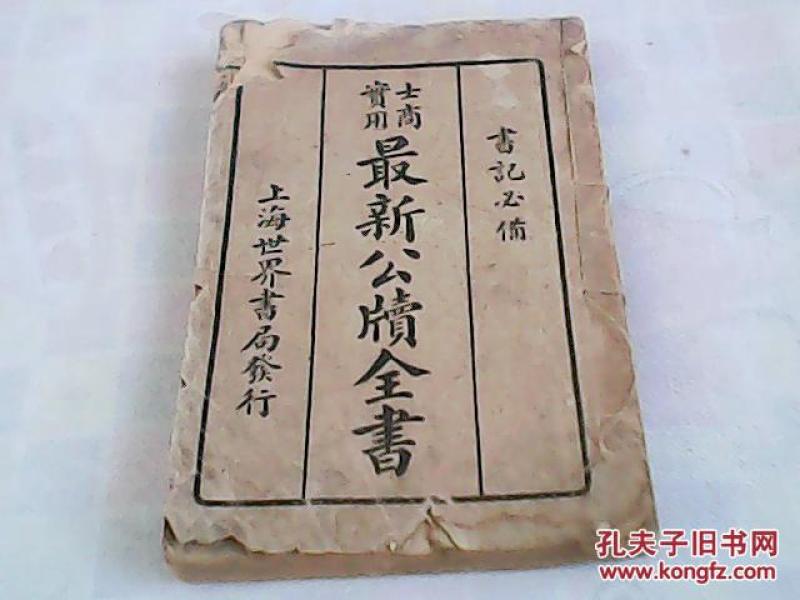 書記必備
士商
實用
最新公牘全書
上海世界書局發行
孔夫子旧书网
www.kongfz.com